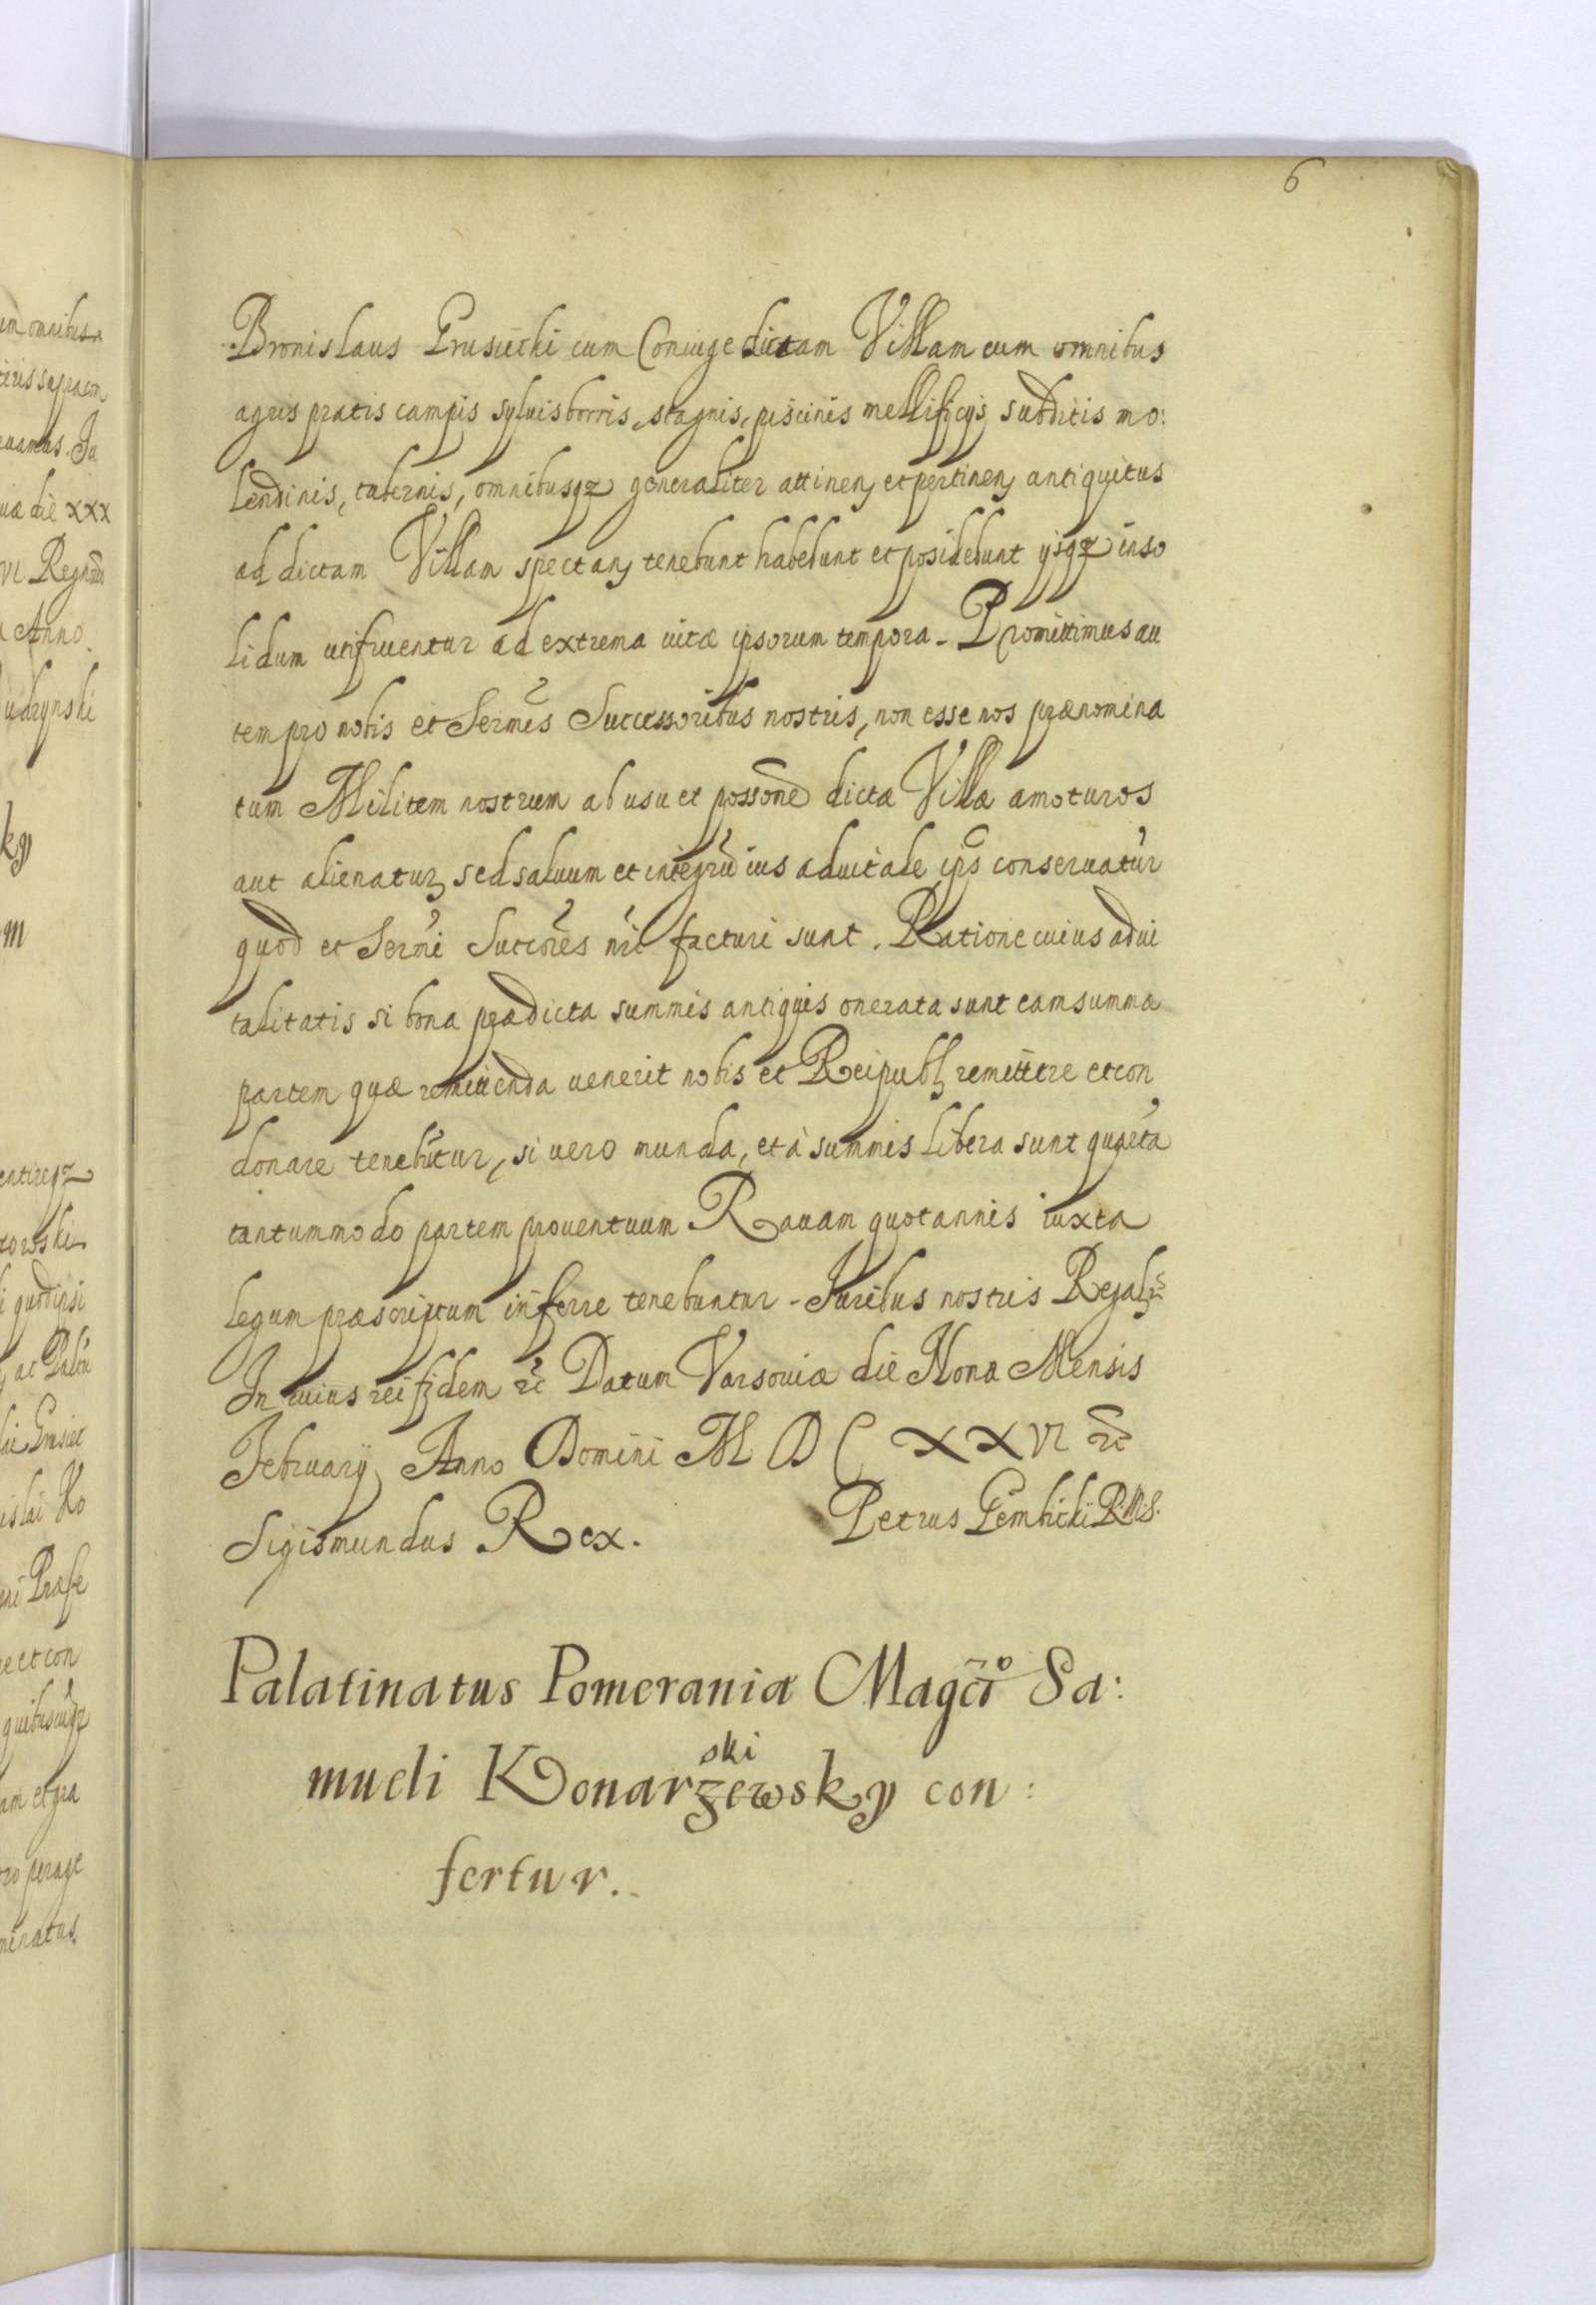 6
Bronislaus Grusiecki cum Coniuge dictam Villam cum omnibus
agris pratis campis syluis borris, stagnis, piscinis mellificijs subditis mo:
lendinis, tabernis, omnibusqz generaliter attinen et pertinen antiquitus
ad dictam Villam spectan tenebunt habebunt et posidebunt ysqz inso
lidum utifruentur ad extrema uitæ ipsorum tempora - Promittimus au
tem pro nobis et Sermis Successoribus nostris, non esse nos prænomina
tum Militem nostrum ab usu et possone dicta Villa amoturos
aut alienatur, sed saluum et integrũ ius aduitale ips conseruatur
quod et Sermi Succores nri facturi sunt. Ratione cuius adui
talitatis si bona prædicta summis antiquis onerata sunt eam summæ
partem quæ remittenda uenerit nobis et Reipubl remittere et con
donare tenebuntur, si uero munda, et à summis libera sunt quarta
tantummodo partem prouentuum Rauam quotannis iuxta
legum præscriptum inferre tenebuntur - Juribus nostris Regal
In cuius rei fidem rc Datum Varsouiæ die Nona Mensis
February Anno Domini M D C XXVI rc
Sigismundus Rex. Petrus Gembicki R.M.S.
Palatinatus Pomeraniæ Magco Sa:
ski
mueli Konarzewsky con:
fertur.